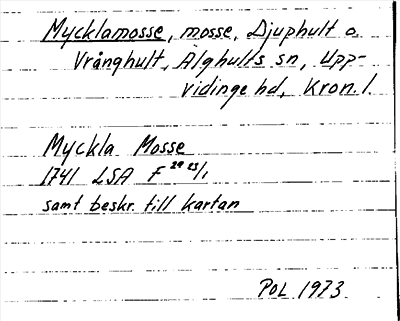 Mycklamosse, mosse, Djuphult o.
Vrånghult, Älghults sn, Upp-
vidinge hd, Kron. l.
Myckla Mosse
1741 LSA F 29 23/1
samt beskr. till kartan
PoL 1973